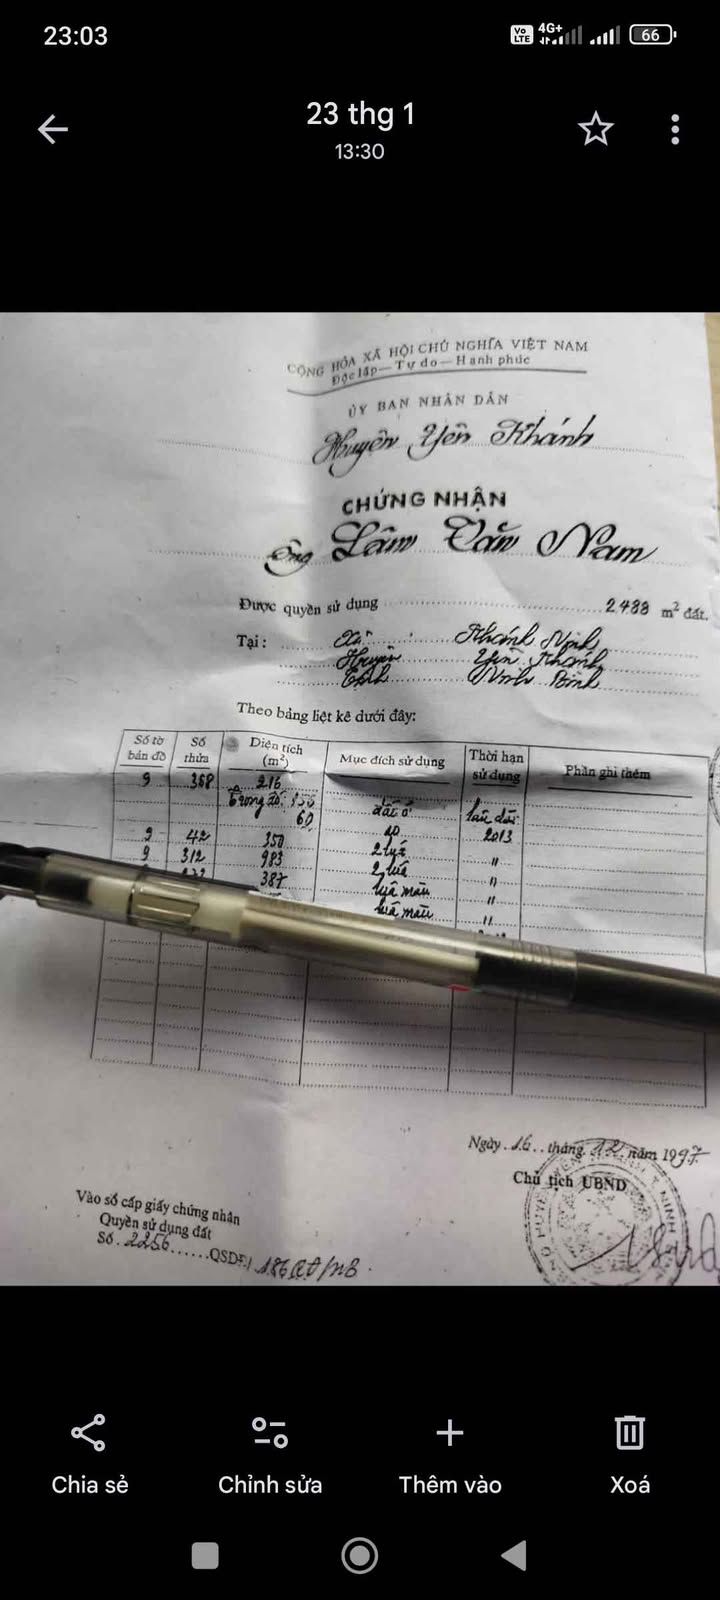 23:03
Vo LTE 4G+ 66
23 thg 1
13:30
CỘNG HÒA XÃ HỘI CHỦ NGHĨA VIỆT NAM
Độc lập — Tự do — Hạnh phúc
ỦY BAN NHÂN DÂN
Huyện Yên Khánh
CHỨNG NHẬN
Ông Lâm Văn Nam
Được quyền sử dụng 2488 m² đất.
Tại: Xã Khánh Ninh
Huyện Yên Khánh
Tỉnh Ninh Bình
Theo bảng liệt kê dưới đây:
Số tờ bản đồ Số thửa Diện tích (m²) Mục đích sử dụng Thời hạn sử dụng Phần ghi thêm
9 368 216
Trong đó: đất ở lâu dài
60 ao 2013
9 42 350 2 lúa "
9 312 983 2 lúa "
387 lúa màu "
lúa màu "
Ngày 16 tháng 12 năm 1997
Chủ tịch UBND
Vào sổ cấp giấy chứng nhận
Quyền sử dụng đất
Số 2256 QSDĐ/
Chia sẻ Chỉnh sửa Thêm vào Xoá